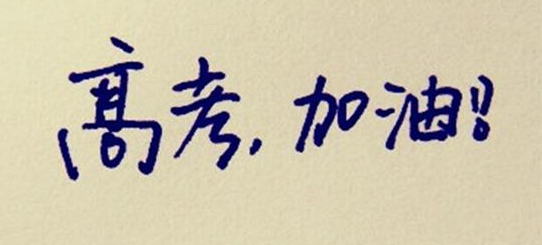 高考,加油!!